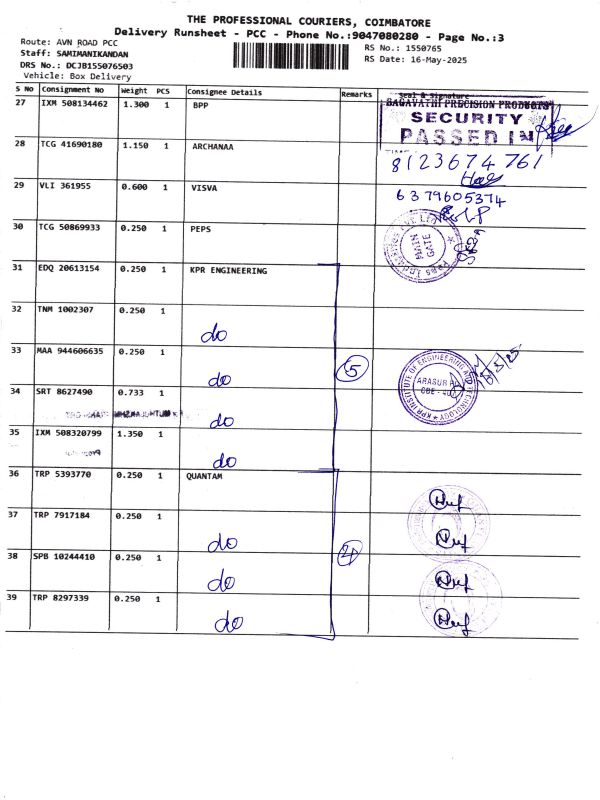 THE PROFESSIONAL COURIERS, COIMBATORE
Delivery Runsheet - PCC - Phone No.:9047080280 - Page No.:3
Route: AVN ROAD PCC
Staff: SAMIMANIKANDAN
DRS No.: DCJB155076503
Vehicle: Box Delivery
RS No.: 1550765
RS Date: 16-May-2025
S No Consignment No Weight PCS Consignee Details Remarks Seal & Signature
27 IXM 508134462 1.300 1 BPP
BAGAVATHI PRECISION PRODUCTS
SECURITY
PASSED IN
28 TCG 41690180 1.150 1 ARCHANAA
8123674761
29 VLI 361955 0.600 1 VISVA
6379605374
30 TCG 50869933 0.250 1 PEPS
MAIN
GATE
31 EDQ 20613154 0.250 1 KPR ENGINEERING
32 TNM 1002307 0.250 1 do
33 MAA 944606635 0.250 1 do 5
KPR INSTITUTE OF ENGINEERING AND TECHNOLOGY
34 SRT 8627490 0.733 1 do
35 IXM 508320799 1.350 1 do
36 TRP 5393770 0.250 1 QUANTAM
37 TRP 7917184 0.250 1 do
38 SPB 10244410 0.250 1 do 4
39 TRP 8297339 0.250 1 do